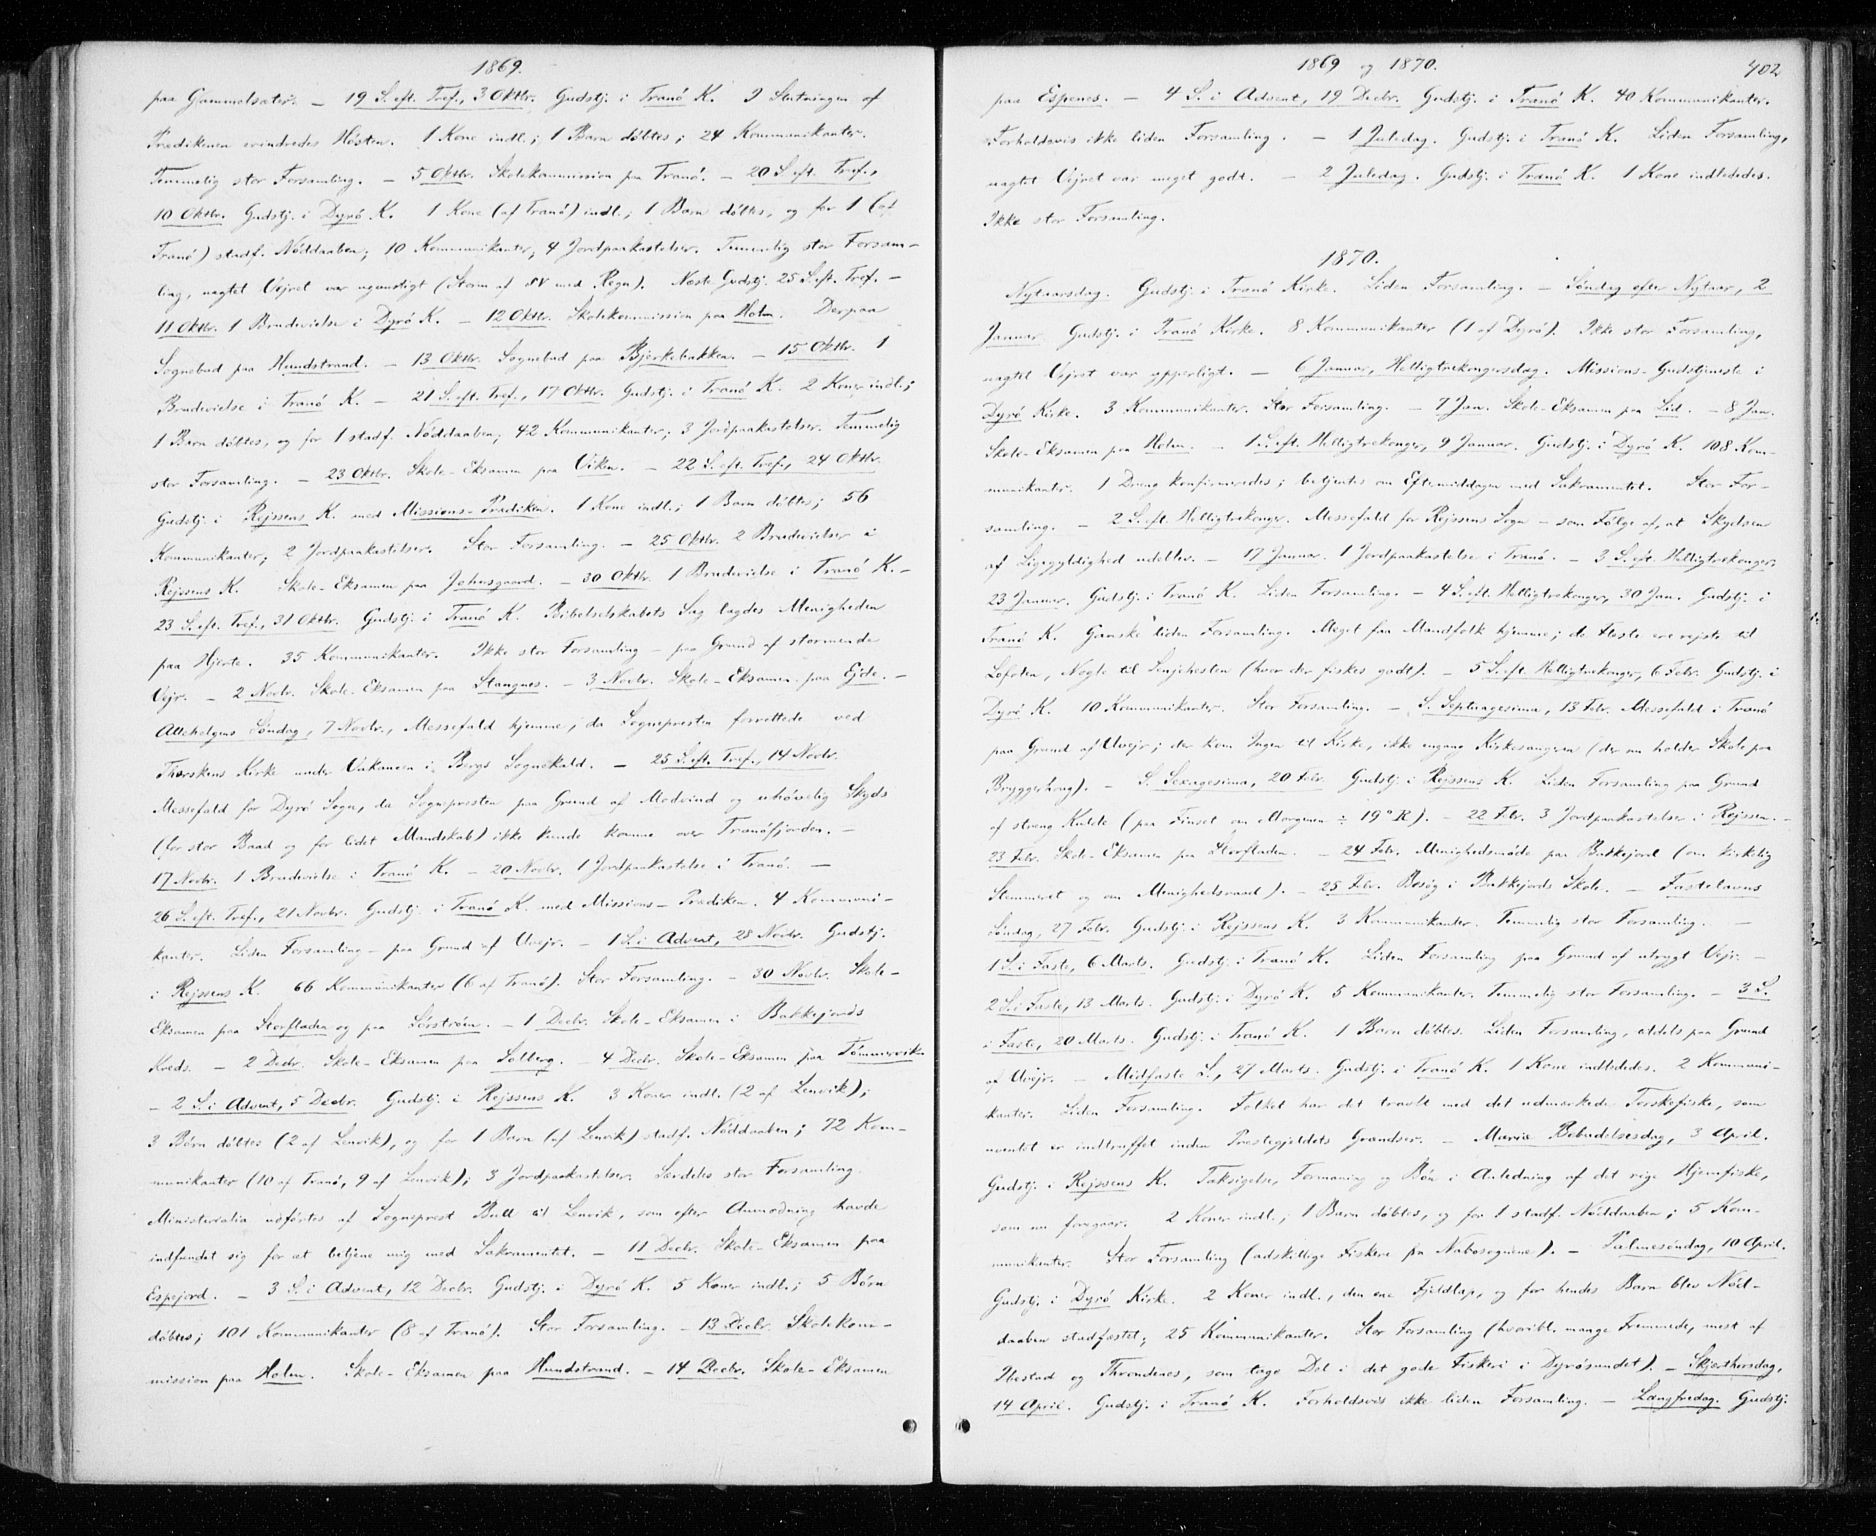 1869.
paa Gammelsæter. — 19 S. eft. Tref., 3 Oktbr. Gudstj. i Tranö K. I Slutningen af
Prædikenen erindredes Hösten. 1 Kone indl.; 1 Barn döbtes; 24 Kommunikanter.
Temmelig stor Forsamling. — 5 Oktbr. Skolekommission paa Tranö. — 20 S. eft. Tref.,
10 Oktbr. Gudstj. i Dyrö K. 1 Kone (af Tranö) indl.; 1 Barn döbtes, og for 1 (af
Tranö) stadf. Nöddaaben; 10 Kommunikanter, 4 Jordpaakastelser. Temmelig stor Forsam-
ling, uagtet Vejret var ugunstigt (Storm af SV med Regn). Næste Gudstj. 25 S. eft. Tref. —
11 Oktbr. 1 Brudevielse i Dyrö K. — 12 Oktbr. Skolekommission paa Holm. Derpaa
Sognebud paa Hundstrand. — 13 Oktbr. Sognebud paa Bjerkebakken. — 15 Oktbr. 1
Brudevielse i Tranö K. — 21 S. eft. Tref., 17 Oktbr. Gudstj. i Tranö K. 2 Koner indl.;
1 Barn döbtes, og for 1 stadf. Nöddaaben; 42 Kommunikanter; 3 Jordpaakastelser. Temmelig
stor Forsamling. — 23 Oktbr. Skole-Eksamen paa Viken. — 22 S. eft. Tref., 24 Oktbr.
Gudstj. i Rejssens K. med Missions-Prædiken. 1 Kone indl.; 1 Barn döbtes; 56
Kommunikanter; 2 Jordpaakastelser. Stor Forsamling. — 25 Oktbr. 2 Brudevielser i
Rejssens K. Skole-Eksamen paa Johnsgaard. — 30 Oktbr. 1 Brudevielse i Tranö K. —
23 S. eft. Tref., 31 Oktbr. Gudstj. i Tranö K. Bibelselskabets Sag lagdes Menigheden
paa Hjerte. 35 Kommunikanter. Ikke stor Forsamling — paa Grund af stormende
Vejr. — 2 Novbr. Skole-Eksamen paa Stangnes. — 3 Novbr. Skole-Eksamen paa Ejde. —
Allehelgens Söndag, 7 Novbr., Messefald hjemme, da Sognepresten forrettede ved
Thorskens Kirke under Vakancen i Bergs Sognekald. — 25 S. eft. Tref., 14 Novbr.
Messefald for Dyrö Sogn, da Sognepresten paa Grund af Modvind og uhövelig Skyds
(for stor Baad og for lidet Mandskab) ikke kunde komme over Tranöfjorden. —
17 Novbr. 1 Brudevielse i Tranö K. — 20 Novbr. 1 Jordpaakastelse i Tranö. —
26 S. eft. Tref., 21 Novbr. Gudstj. i Tranö K. med Missions-Prædiken. 4 Kommuni-
kanter. Liden Forsamling — paa Grund af Uvejr. — 1 S. i Advent, 28 Novbr. Gudstj.
i Rejssens K. 66 Kommunikanter (6 af Tranö). Stor Forsamling. — 30 Novbr. Skole-
Eksamen paa Storfladen og paa Sörström. — 1 Decbr. Skole-Eksamen i Bakkejords
Kreds. — 2 Decbr. Skole-Eksamen paa Solberg. — 4 Decbr. Skole-Eksamen paa Tömmervik.
— 2 S. i Advent, 5 Decbr. Gudstj. i Rejssens K. 3 Koner indl. (2 af Lenvik);
3 Börn döbtes (2 af Lenvik), og for 1 Barn (af Lenvik) stadf. Nöddaaben; 72 Kom-
munikanter (10 af Tranö, 9 af Lenvik); 3 Jordpaakastelser. Særdeles stor Forsamling.
Ministerialia udförtes af Sogneprest Bull til Lenvik, som efter Anmodning havde
indfundet sig for at betjene mig med Sakramentet. — 11 Decbr. Skole-Eksamen paa
Espejord. — 3 S. i Advent, 12 Decbr. Gudstj. i Dyrö K. 5 Koner indl.; 5 Börn
döbtes; 101 Kommunikanter (8 af Tranö). Stor Forsamling. — 13 Decbr. Skolekom-
mission paa Holm. Skole-Eksamen paa Hundstrand. — 14 Decbr. Skole-Eksamen
1869 og 1870.
402
paa Espenes. — 4 S. i Advent, 19 Decbr. Gudstj. i Tranö K. 40 Kommunikanter.
Forholdsvis ikke liden Forsamling. — 1 Juledag. Gudstj. i Tranö K. Liden Forsamling,
uagtet Vejret var meget godt. — 2 Juledag. Gudstj. i Tranö K. 1 Kone indlededes.
Ikke stor Forsamling.
1870.
Nytaarsdag. Gudstj. i Tranö Kirke. Liden Forsamling. — Söndag efter Nytaar, 2
Januar. Gudstj. i Tranö Kirke. 8 Kommunikanter (1 af Dyrö). Ikke stor Forsamling,
uagtet Vejret var ypperligt. — 6 Januar, Helligtrekongersdag. Missions-Gudstjeneste i
Dyrö Kirke. 3 Kommunikanter. Stor Forsamling. — 7 Jan. Skole-Eksamen paa Lid. — 8 Jan.
Skole-Eksamen paa Holm. — 1 S. eft. Helligtrekonger, 9 Januar. Gudstj. i Dyrö K. 108 Kom-
munikanter. 1 Dreng konfirmeredes; betjentes om Eftermiddagen med Sakramentet. Stor For-
samling. — 2 S. eft. Helligtrekonger. Messefald for Rejssens Sogn — som Fölge af, at Skydsen
af Ligegyldighed udeblev. — 17 Januar. 1 Jordpaakastelse i Tranö. — 3 S. eft. Helligtrekonger,
23 Januar. Gudstj. i Tranö K. Liden Forsamling. — 4 S. eft. Helligtrekonger, 30 Jan. Gudstj. i
Tranö K. Ganske liden Forsamling. Meget faa Mandfolk hjemme; de Fleste ere rejste til
Lofoten, Nogle til Senjehesten (hvor der fiskes godt). — 5 S. eft. Helligtrekonger, 6 Febr. Gudstj. i
Dyrö K. 10 Kommunikanter. Stor Forsamling. — S. Septuagesima, 13 Febr. Messefald i Tranö
paa Grund af Uvejr; der kom Ingen til Kirke, ikke engang Kirkesangeren (der nu holder Skole paa
Bryggerhaug). — S. Sexagesima, 20 Febr. Gudstj. i Rejssens K. Liden Forsamling paa Grund
af streng Kulde (paa Finset om Morgenen ÷ 19° R). — 22 Febr. 3 Jordpaakastelser i Rejssen. —
23 Febr. Skole-Eksamen paa Storfladen. — 24 Febr. Menighedsmöde paa Bakkejord (om kirkelig
Stemmeret og om Menighedsraad). — 25 Febr. Besög i Bakkejords Skole. — Fastelavns
Söndag, 27 Febr. Gudstj. i Rejssens K. 3 Kommunikanter. Temmelig stor Forsamling. —
1 S. i Faste, 6 Marts. Gudstj. i Tranö K. Liden Forsamling paa Grund af utrygt Vejr. —
2 S. i Faste, 13 Marts. Gudstj. i Dyrö K. 5 Kommunikanter. Temmelig stor Forsamling. — 3 S.
i Faste, 20 Marts. Gudstj. i Tranö K. 1 Barn döbtes. Liden Forsamling, eldels paa Grund
af Uvejr. — Midfaste S., 27 Marts. Gudstj. i Tranö K. 1 Kone indlededes. 2 Kommuni-
kanter. Liden Forsamling. Folket har det travlt med det udmærkede Torskefiske, som
uventet er indtruffet inden Prestegjeldets Grændser. — Mariæ Bebudelsesdag, 3 April.
Gudstj. i Rejssens K. Taksigelse, Formaning og Bön i Anledning af det rige Hjemfiske,
som nu foregaar. 2 Koner indl.; 1 Barn döbtes, og for 1 stadf. Nöddaaben; 5 Kom-
munikanter. Stor Forsamling (adskillige Fiskere fra Nabosognene). — Palmesöndag, 10 April.
Gudstj. i Dyrö Kirke. 2 Koner indl., den ene Fjeldlap, og for hendes Barn blev Nöd-
daaben stadfæstet; 25 Kommunikanter. Stor Forsamling (hvoribl. mange Fremmede, mest af
Ibestad og Throndenes, som tage Del i det gode Fiskeri i Dyrösundet). — Skjærthorsdag,
14 April. Gudstj. i Tranö K. Forholdsvis ikke liden Forsamling. — Langfredag. Gudstj.